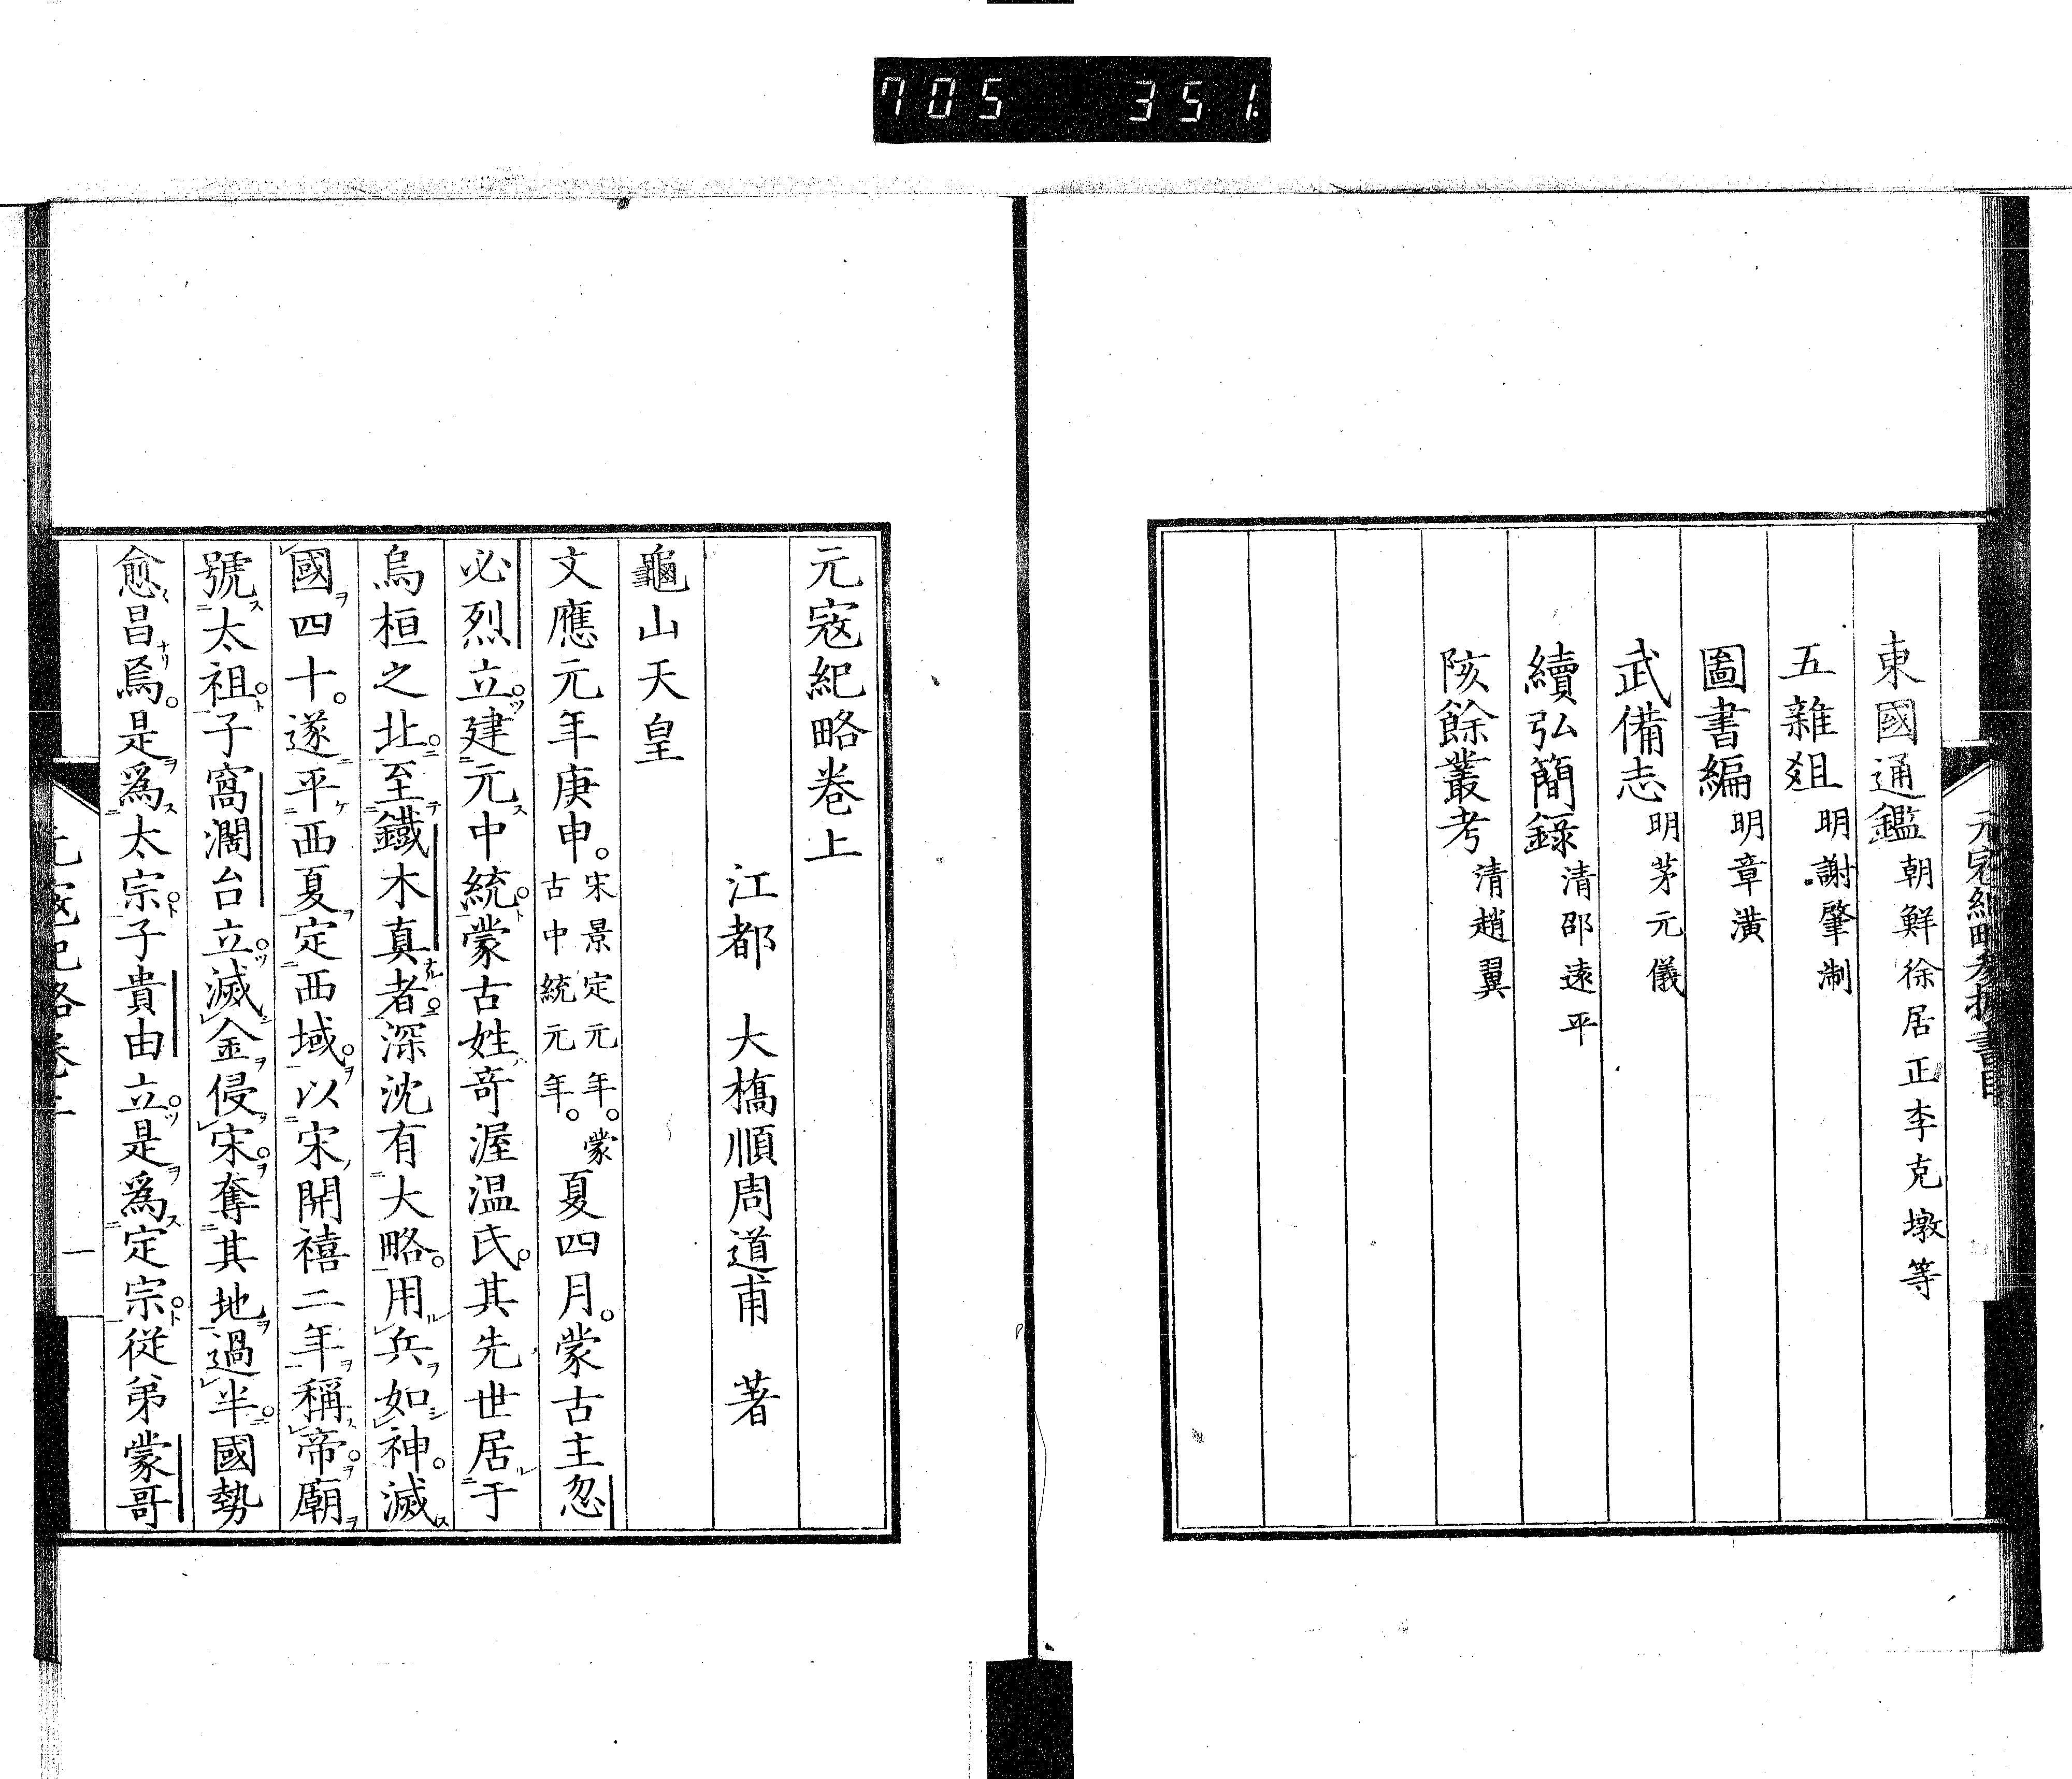 705 351.
元寇紀略參據書目
東國通鑑 朝鮮徐居正李克墩等
五雜爼 明謝肇淛
圖書編 明章潢
武備志 明茅元儀
續弘簡錄 清邵遠平
陔餘叢考 清趙翼
元寇紀略卷上
江都 大橋順周道甫 著
龜山天皇
文應元年庚申。宋景定元年。蒙古中統元年。夏四月。蒙古主忽
必烈立。建元中統。蒙古姓奇渥温氏。其先世居于
烏桓之北。至鐵木真者。深沈有大略。用兵如神。滅
國四十。遂平西夏定西域。以宋開禧二年稱帝。廟
號太祖。子窩濶台立。滅金侵宋。奪其地過半。國勢
愈昌焉。是爲太宗。子貴由立。是爲定宗。從弟蒙哥
元寇紀略卷上
一